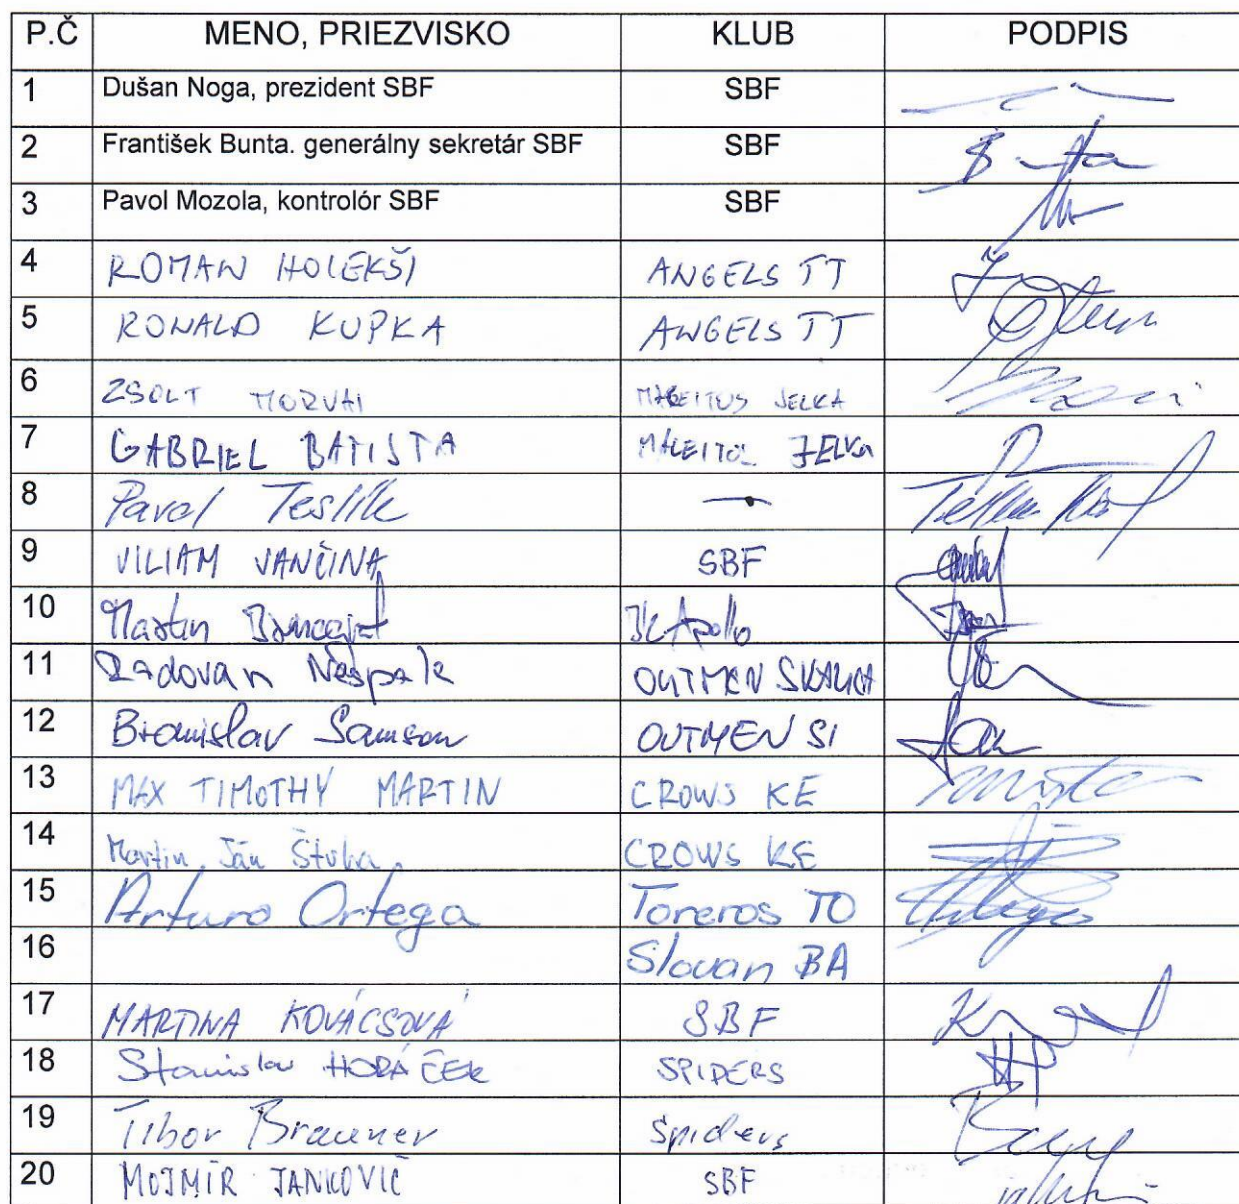 P.Č MENO, PRIEZVISKO KLUB PODPIS
1 Dušan Noga, prezident SBF SBF
2 František Bunta. generálny sekretár SBF SBF
3 Pavol Mozola, kontrolór SBF SBF
4 ROMAN HOLEKŠI ANGELS TT
5 RONALD KUPKA ANGELS TT
6 ZSOLT MORVAI JELKA
7 GABRIEL BATISTA JELKA
8 Pavol Teslík —
9 VILIAM JANČINA SBF
10 Martin Apollo
11 Radovan Nešpak OUTMEN SKALICA
12 Branislav Samson OUTMEN SI
13 MAX TIMOTHY MARTIN CROWS KE
14 Martin Ján CROWS KE
15 Arturo Ortega Toreros TO
16 Slovan BA
17 MARTINA KOVÁCSOVÁ SBF
18 Stanislav HORÁČEK SPIDERS
19 Tibor Brauner Spiders
20 MOJMÍR JANKOVIČ SBF